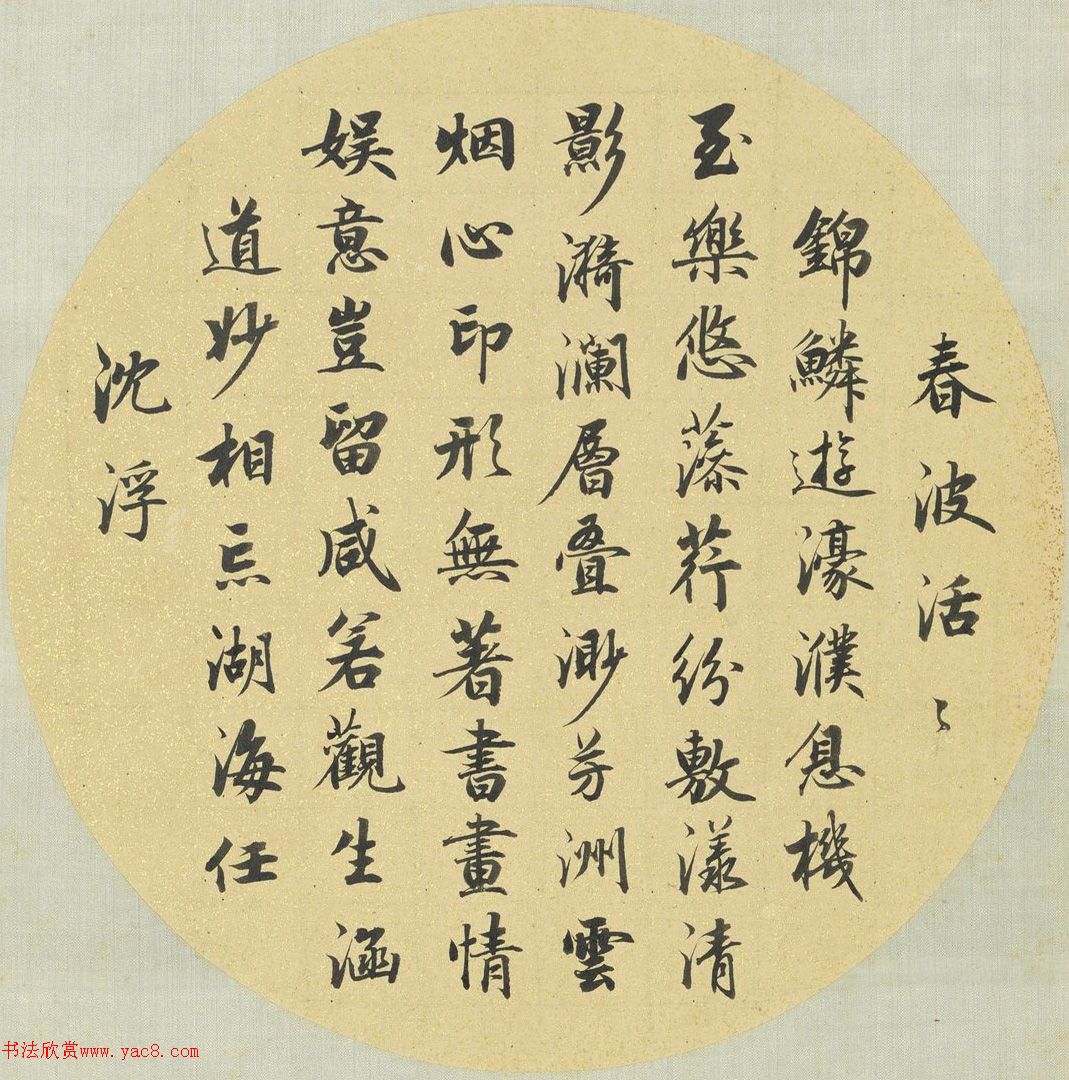 春波活〻
錦鱗遊濠濮息機
至樂悠藻荇紛敷漾清
影漪瀾層疊渺芳洲雲
烟心印形無著書畫情
娱意豈留咸若觀生涵
道妙相忘湖海任
沈浮
书法欣赏www.yac8.com